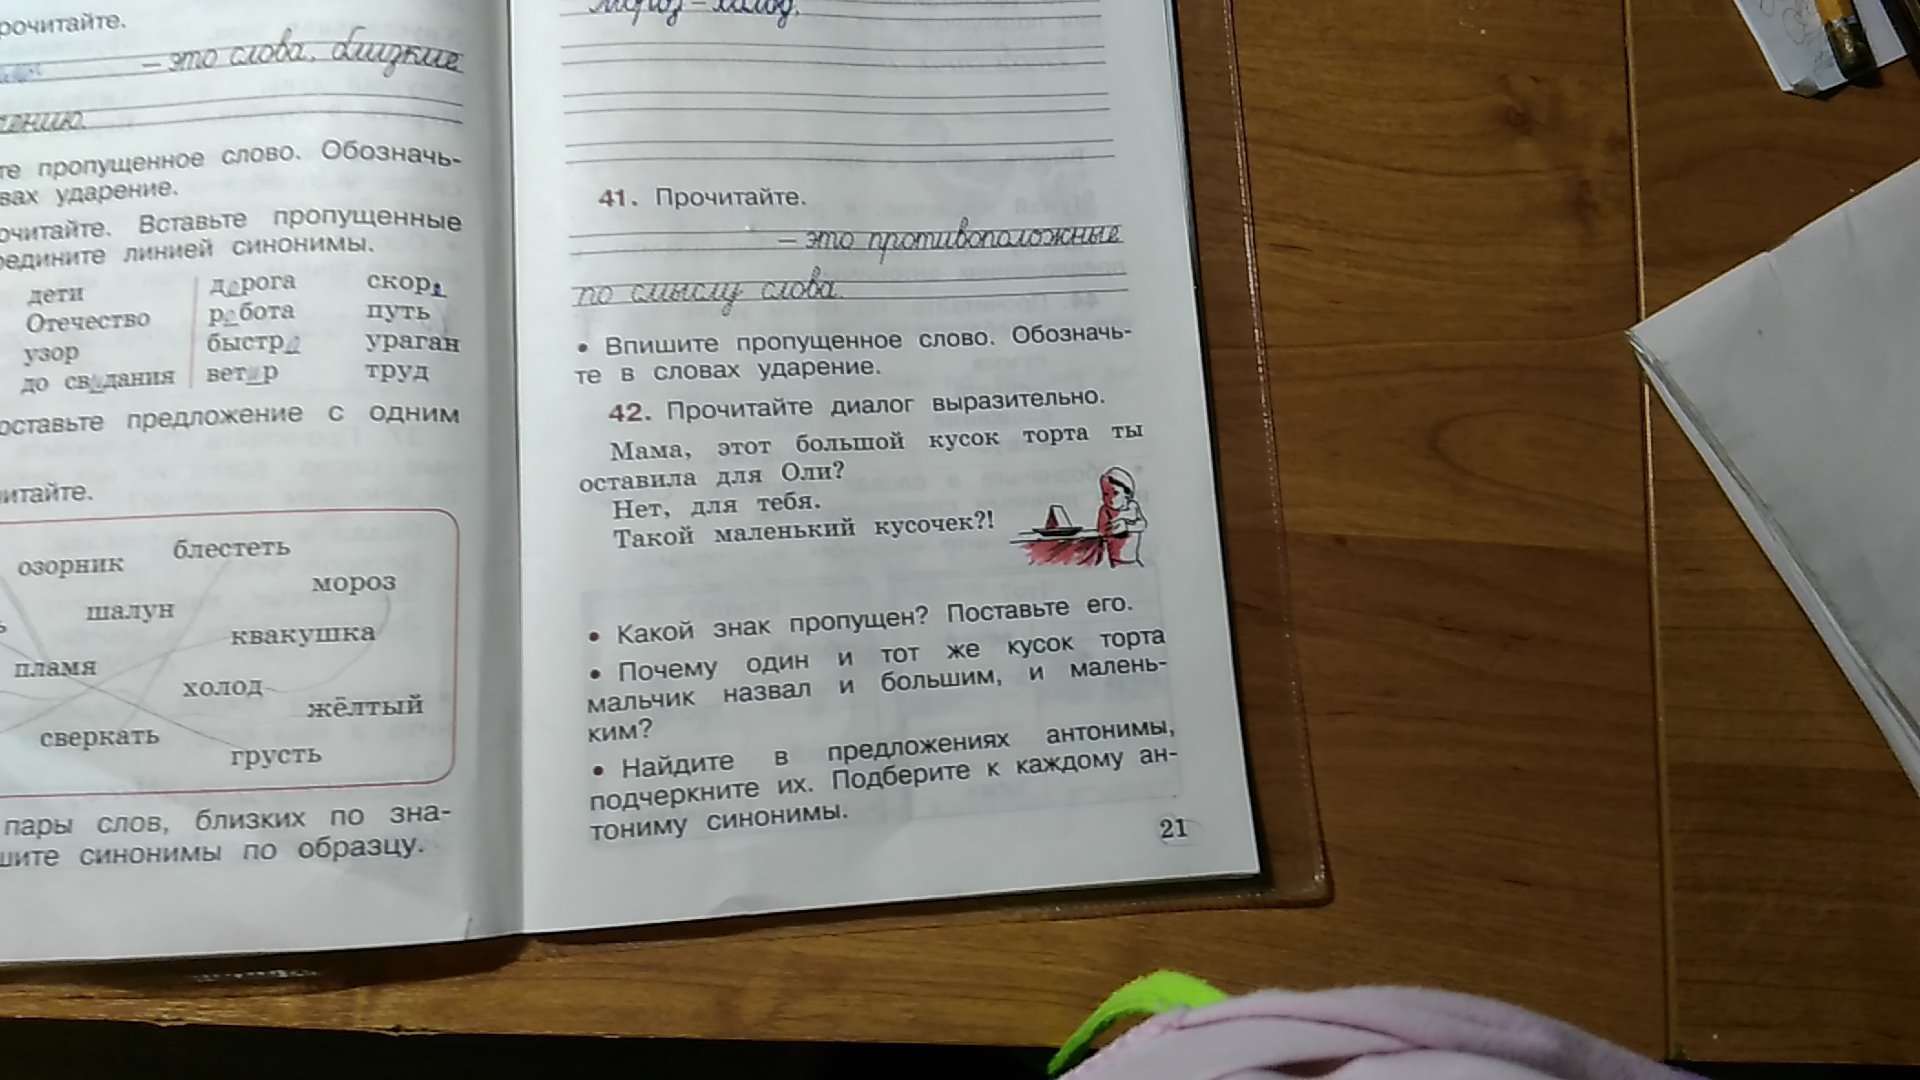 рочитайте.
– это слова, близкие
те пропущенное слово. Обозначь-
вах ударение.
очитайте. Вставьте пропущенные
едините линией синонимы.
дети дорога скоро
Отечество работа путь
узор быстро ураган
до свидания ветер труд
оставьте предложение с одним
итайте.
озорник блестеть
мороз
шалун
квакушка
пламя
холод
жёлтый
сверкать
грусть
пары слов, близких по зна-
шите синонимы по образцу.
Мороз – холод.
41. Прочитайте.
– это противоположные
по смыслу слова.
• Впишите пропущенное слово. Обозначь-
те в словах ударение.
42. Прочитайте диалог выразительно.
Мама, этот большой кусок торта ты
оставила для Оли?
Нет, для тебя.
Такой маленький кусочек?!
• Какой знак пропущен? Поставьте его.
• Почему один и тот же кусок торта
мальчик назвал и большим, и малень-
ким?
• Найдите в предложениях антонимы,
подчеркните их. Подберите к каждому ан-
тониму синонимы.
21